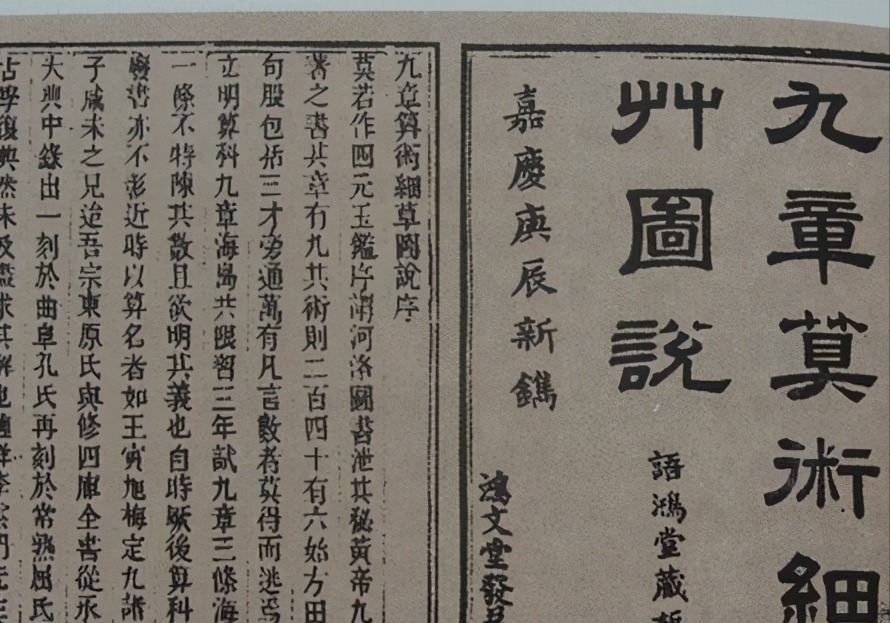 九章算術細
艸圖說
語鴻堂藏
嘉慶庚辰新鐫
鴻文堂發
九章算術細草圖說序
莫若作四元玉鑑序謂河洛圖書泄其秘黃帝九
章之書其章有九其術則二百四十有六始方田
句股包括三才旁通萬有凡言數者莫得而逃焉
立明算科九章海島共限習三年試九章三條海
一條不特陳其數且欲明其義也自時厥後算科
廢書亦不彰近時以算名者如王寅旭梅定九諸
子咸未之見迨吾宗東原氏與修四庫全書從永
大典中錄出一刻於曲阜孔氏再刻於常熟屈氏
古學復興然未及盡求其解也